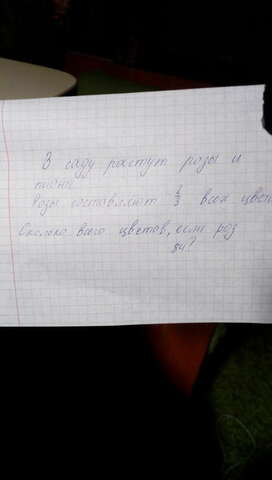 В саду растут розы и
пионы
Розы составляют 1/3 всех цвет
Сколько всего цветов, если роз
84?